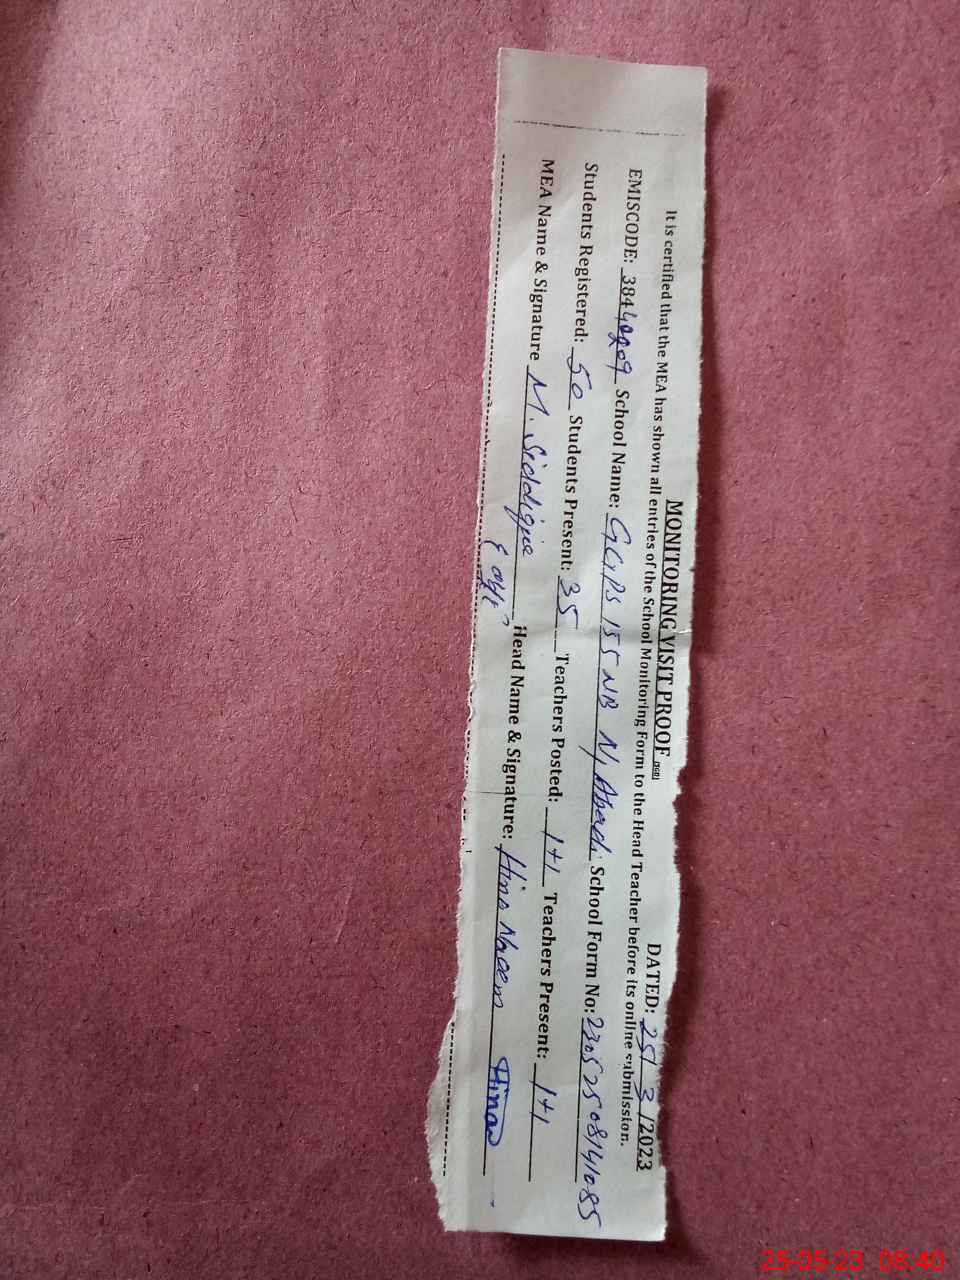 MONITORING VISIT PROOF (SGD) DATED: 25/ 3 /2023
It is certified that the MEA has shown all entries of the School Monitoring Form to the Head Teacher before its online submission.
EMISCODE: School Name: GGPS 155 NB N/Abadi School Form No: 23052508141085
Students Registered: 50 Students Present: 35 Teachers Posted: 1+1 Teachers Present: 1+1
MEA Name & Signature M. Siddique Head Name & Signature: Hina Naeem Hina
25-05-23 08:40